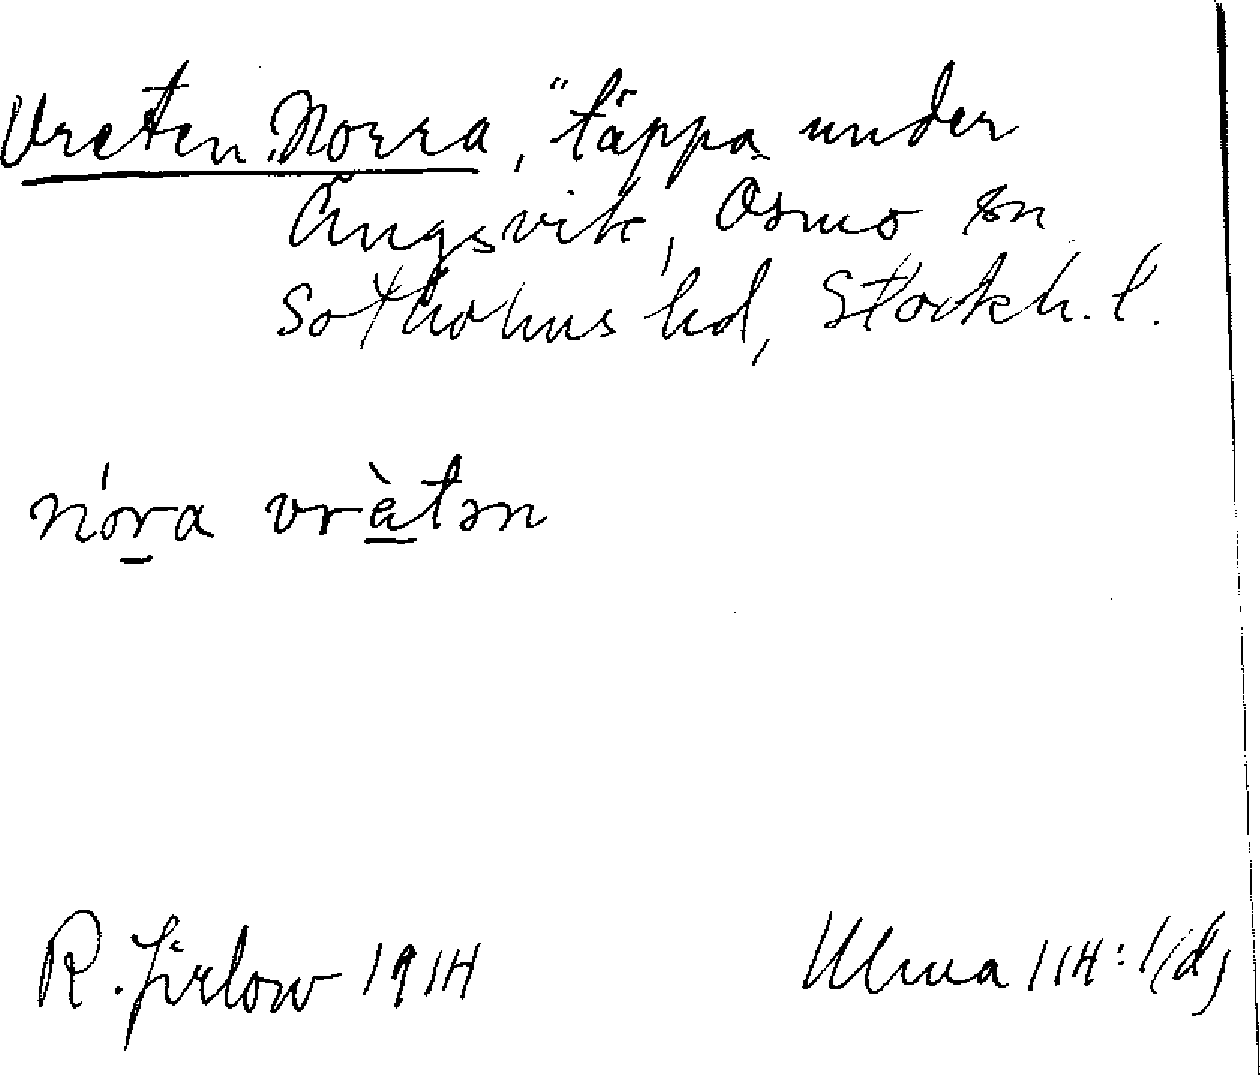 Vreten Norra, "täppa under
Ängsvik, Ösmo sn
Sotholms hd, Stockh. l.
nóra vrètən
R. Jirlow 1914
Ulma 114:1(d)